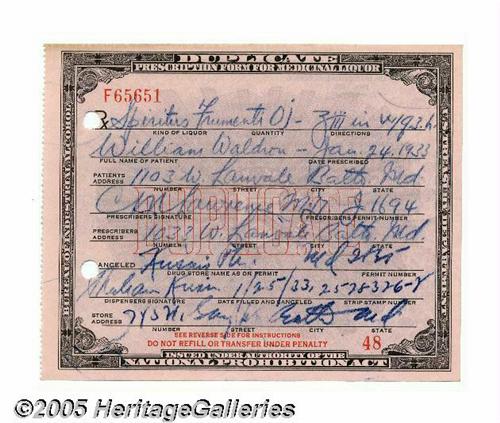 DUPLICATE
PRESCRIPTION FORM FOR MEDICINAL LIQUOR
F65651
Rx Spiritus Frumenti Oj - ℥iii in
KIND OF LIQUOR QUANTITY DIRECTIONS
William Waldron - Jan. 24, 1933
FULL NAME OF PATIENT DATE PRESCRIBED
PATIENTS ADDRESS 1103 W. Lanvale Balto. Md.
NUMBER STREET CITY STATE
Lawrence I 1694
PRESCRIBERS SIGNATURE PRESCRIBERS PERMIT NUMBER
1033 W. Lanvale Balto. Md.
ADDRESS NUMBER STREET CITY STATE
CANCELED
DRUG STORE NAME AS ON PERMIT PERMIT NUMBER
1/25/33
DISPENSERS SIGNATURE DATE FILLED AND CANCELED STRIP STAMP NUMBER
STORE ADDRESS Md
NUMBER STREET CITY STATE
SEE REVERSE SIDE FOR INSTRUCTIONS
DO NOT REFILL OR TRANSFER UNDER PENALTY 48
ISSUED UNDER AUTHORITY OF THE
NATIONAL PROHIBITION ACT
BUREAU OF INDUSTRIAL ALCOHOL
U.S. TREASURY DEPARTMENT
DUPLICATE
©2005 HeritageGalleries